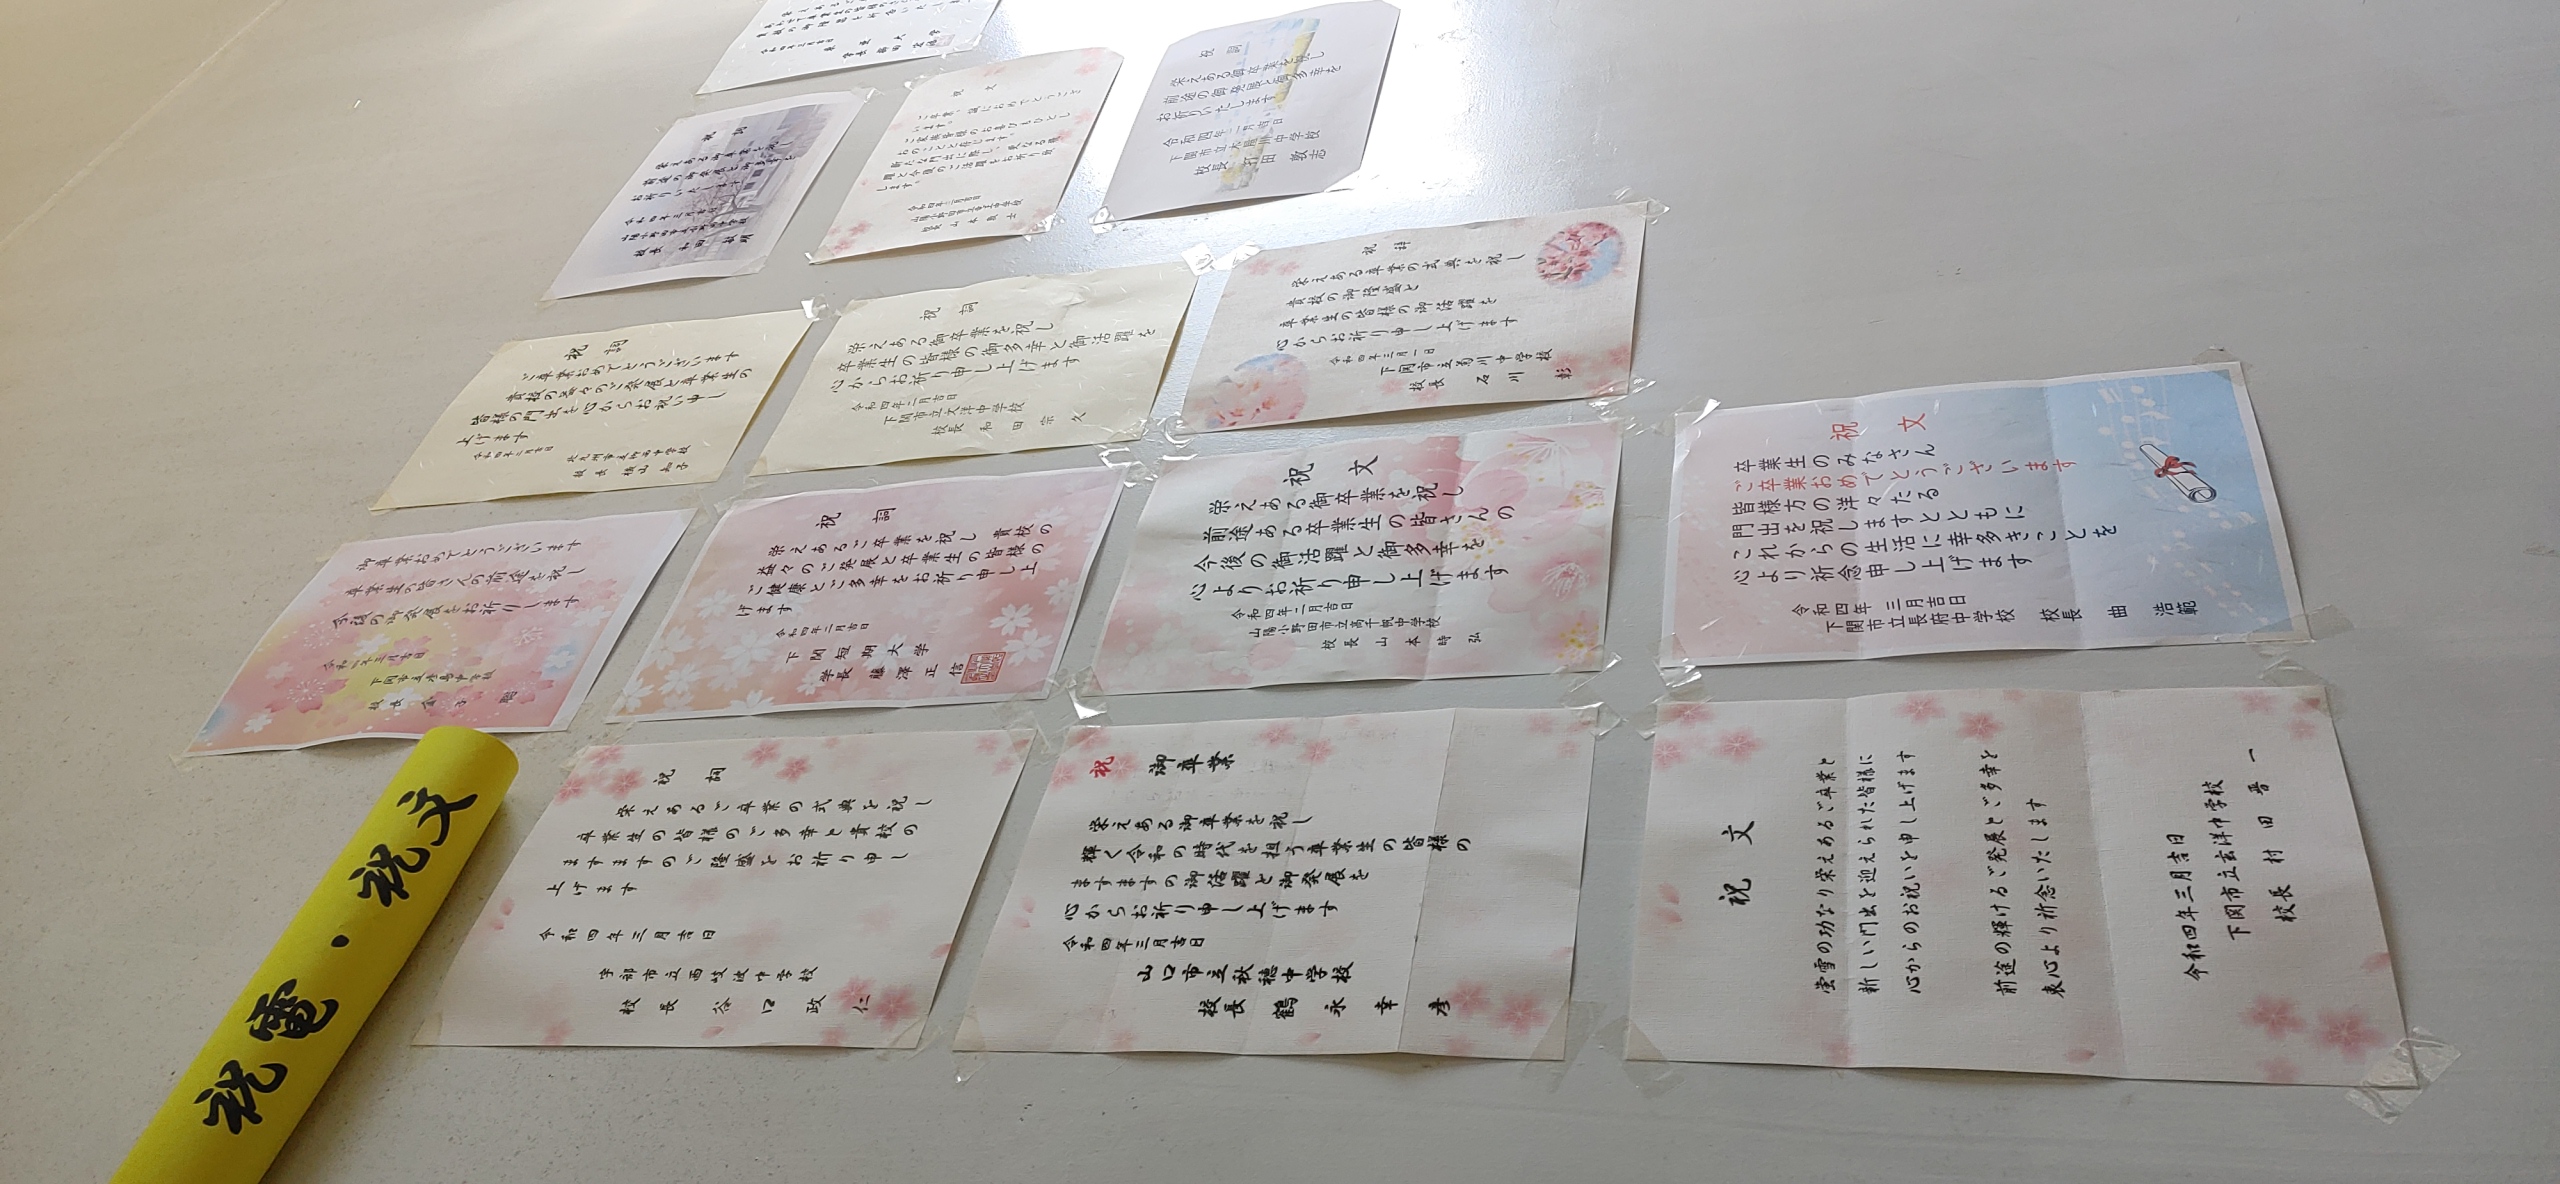 祝電・祝文
祝詞
栄えある御卒業を祝し
前途の御発展と御多幸を
お祈りいたします
校長 和田
祝文
ご卒業、誠におめでとうござ
います。
ご家族皆様のお喜びもひとし
おのことと存じます。
します。
祝詞
栄えある御卒業を祝し
前途の御発展と御多幸を
お祈りいたします
令和四年三月吉日
下関市立木屋川中学校
校長 打田 敦志
祝詞
ご卒業おめでとうございます
貴校の益々のご発展と卒業生の
皆様の門出を心からお祝い申し
上げます
令和四年三月吉日
祝詞
栄えある御卒業を祝し
卒業生の皆様の御多幸と御活躍を
心からお祈り申し上げます
令和四年三月吉日
下関市立文洋中学校
校長 和田 宗久
祝詞
栄えある卒業の式典を祝し
貴校の御隆盛と
卒業生の皆様の御活躍を
心からお祈り申し上げます
令和四年三月一日
下関市立菊川中学校
校長 石川 彰
御卒業おめでとうございます
卒業生の皆さんの前途を祝し
今後の御発展をお祈りします
校長
祝詞
栄えあるご卒業を祝し 貴校の
益々のご発展と卒業生の皆様の
ご健康とご多幸をお祈り申し上
げます
令和四年三月吉日
下関短期大学
学長 藤澤正信
祝文
栄えある御卒業を祝し
前途ある卒業生の皆さんの
今後の御活躍と御多幸を
心よりお祈り申し上げます
令和四年三月吉日
山陽小野田市立高千帆中学校
校長 山本時弘
祝文
卒業生のみなさん
ご卒業おめでとうございます
皆様方の洋々たる
門出を祝しますとともに
これからの生活に幸多きことを
心より祈念申し上げます
令和四年 三月吉日
下関市立長府中学校 校長 曲 浩範
祝詞
栄えあるご卒業の式典を祝し
卒業生の皆様のご多幸と貴校の
ますますのご隆盛をお祈り申し
上げます
令和四年三月吉日
宇部市立西岐波中学校
校長 谷口政仁
祝 御卒業
栄えある御卒業を祝し
輝く令和の時代を担う卒業生の皆様の
ますますの御活躍と御発展を
心からお祈り申し上げます
令和四年三月吉日
山口市立秋穂中学校
校長 鶴永幸彦
祝文
蛍雪の功なり栄えあるご卒業と
新しい門出を迎えられた皆様に
心からのお祝いを申し上げます
前途の輝けるご発展とご多幸を
衷心より祈念いたします
令和四年三月吉日
下関市立玄洋中学校
校長 村田晋一